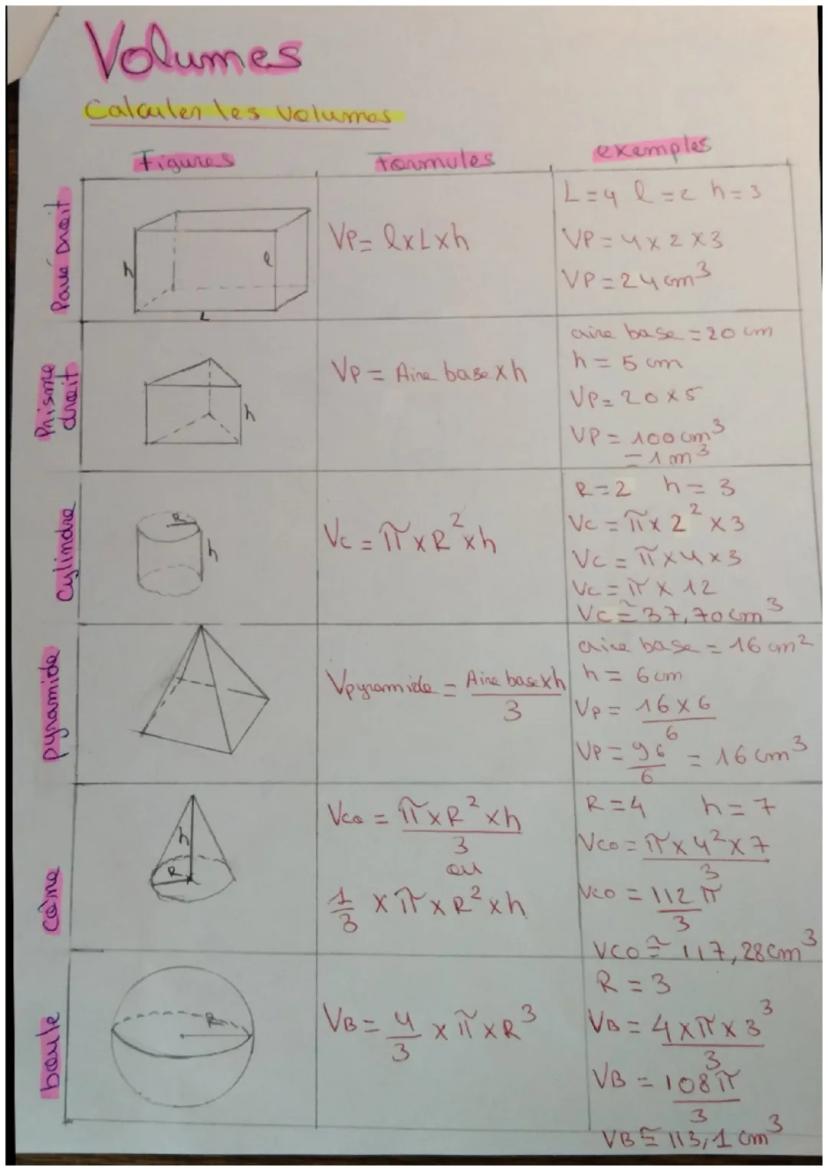 Volumes
Calculer les volumes
Figures Formules exemples
Pavé Droit
h l L
VP = l x L x h
L = 4 l = 2 h = 3
VP = 4 x 2 x 3
VP = 24 cm³
Prisme droit
h
VP = Aire base x h
aire base = 20 cm
h = 5 cm
VP = 20 x 5
VP = 100 cm³
= 1 m³
Cylindre
R h
Vc = π x R² x h
R = 2 h = 3
Vc = π x 2² x 3
Vc = π x 4 x 3
Vc = π x 12
Vc ≃ 37,70 cm³
pyramide
Vpyramide = Aire base x h / 3
aire base = 16 cm²
h = 6 cm
Vp = 16 x 6 / 6
Vp = 96 / 6 = 16 cm³
cône
h R
Vco = π x R² x h / 3
ou
1/3 x π x R² x h
R = 4 h = 7
Vco = π x 4² x 7 / 3
Vco = 112 π / 3
Vco ≃ 117,28 cm³
boule
R
VB = 4/3 x π x R³
R = 3
VB = 4 x π x 3³ / 3
VB = 108 π / 3
VB ≃ 113,1 cm³